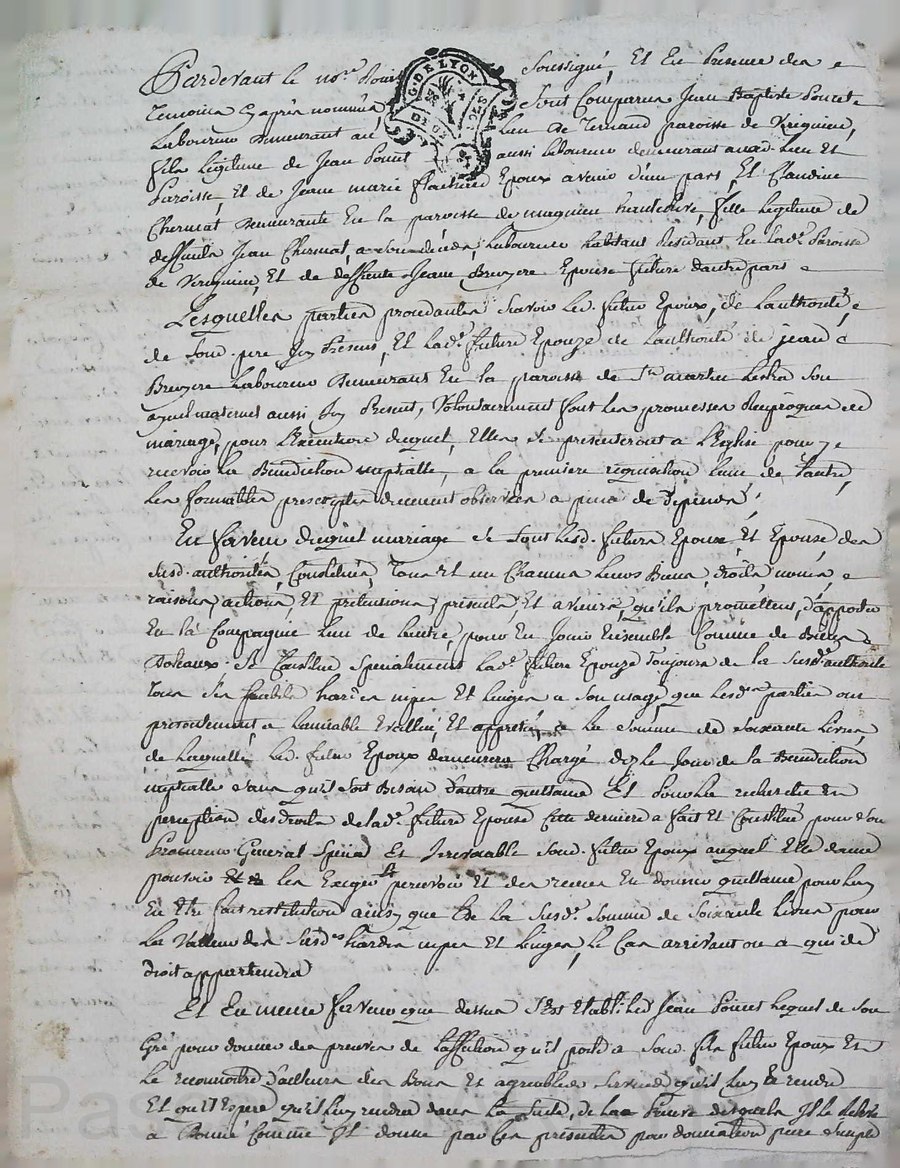 Pardevant le no.re Royal soussigné, Et En Presence des
Temoins Cy après nommés, sont Comparus Jean Baptiste Poncet
G. DE LYON
Laboureur demeurant au lieu de Ternand paroisse de Verignieu,
fils Légitime de Jean Poncet aussi laboureur demeurant aud. lieu Et
Paroisse, Et de Jeane marie Epoux avenir d'une part, Et Claudine
Chermat demeurante En la paroisse de magnieu hauterive, fille legitime de
deffunts Jean Chermat, a son décés, laboureur habitant Residant En lad.e Paroisse
de Verignieu, Et de deffunte Jeane Bruyere Epouse future dautre part
Lesquelles parties procedantes savoir led. futur Epoux, de lauthorité,
de sond. pere Icy Present, Et lad.e future Epouze de lauthorité de jean
Bruyere Laboureur demeurant En la paroisse de St. martin Lestra son
ayeul maternel aussi Icy Present, Volontairement font les promesses Reciproques de
mariage, pour Lexecution duquel, Elles se presenteront a l'Eglise pour y
recevoir la Benediction nuptialle, a la premiere requisition lune de l'autre,
les formalités prescriptes duement observées a peine de Depends,
En faveur duquel mariage se sont lesd. futurs Epoux, Et Epouse des
susd. authorités, Constitués, Tous Et un Chacuns leurs Biens, droits, noms,
raisons, actions, Et pretentions, presents, Et avenirs, qu'ils promettent, d'apporter
En la Compagnie lun de lautre, pour En Jouir Ensemble Comme de Biens
Doteaux. Et Constitue Specialement lad.e future Epouze Toujours de la susd.e authorité
Tous ses habits hardes nipes Et linges a son usage, que lesd.es parties ont
presentement a lamiable Evallué, Et apprecié a la somme de soixante livres,
de laquelle led. futur Epoux demeurera Chargé dez le Jour de la Benediction
nuptialle sans qu'il soit Besoin d'autre quittance Et pour la recherche Et
perception des droits de lad.e future Epouse Cette derniere a fait Et Constitué pour son
Procureur General Special Et Irrevocable sond. futur Epoux auquel Elle donne
pouvoir les Exiger percevoir Et des recues En donner quittance pour luy
En Etre fait restitution ainsy que de la susd.e somme de Soixante livres pour
la Valleur des susd.es hardes nipes Et linges, le Cas arrivant ou a qui de
droit appartendra
Et En meme faveur que dessus s'Est Etabli led. Jean Poncet Lequel de son
Gré pour donner des preuves de laffection qu'il porte a sond. fils futur Epoux Et
le reconnoitre d'ailleurs des Bons Et agreables services qu'il luy a rendu
Et qu'il Espere qu'il luy rendra dans la suite, de la preuve desquels Il le releve
a Donné Comme Il donne par les presentes par donnation pure simple